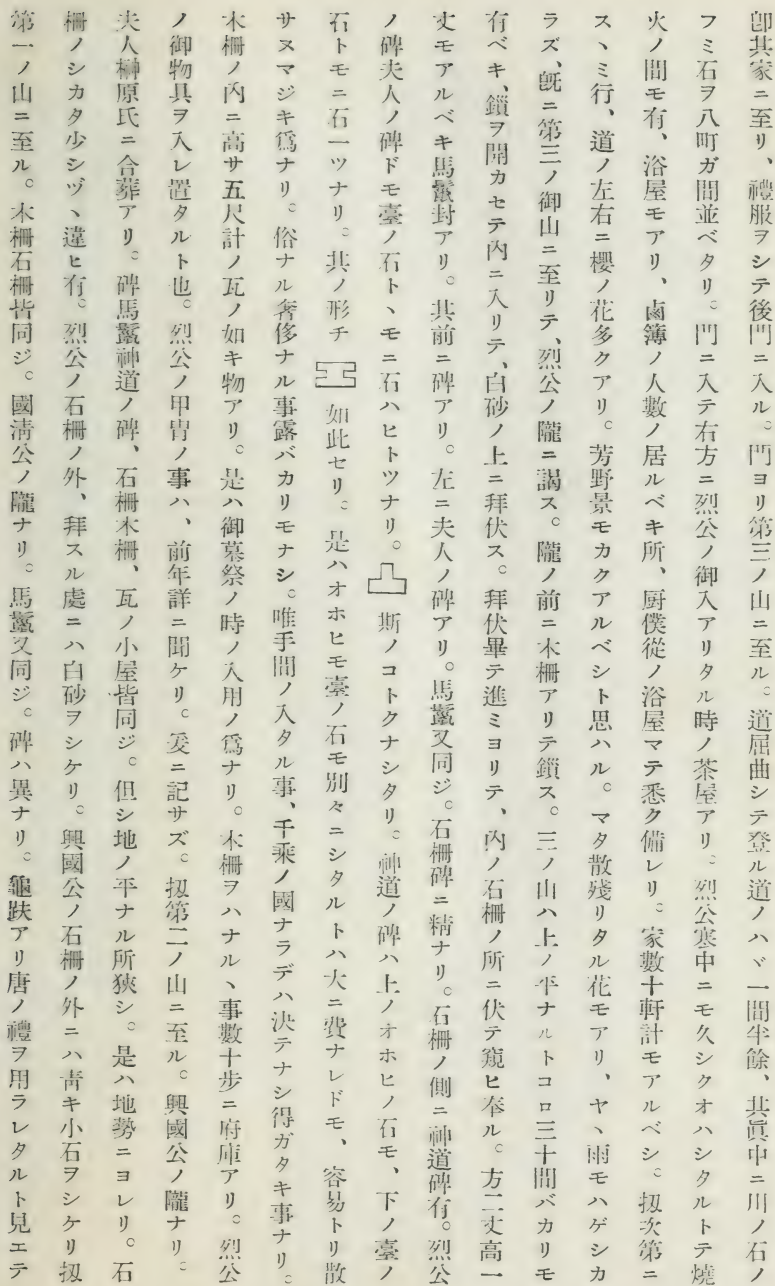 卽其家ニ至リ、禮服ヲシテ後門ニ入ル。門ヨリ第三ノ山ニ至ル。道屈曲シテ登ル道ノハヾ一間半餘、其眞中ニ川ノ石ノ
フミ石ヲ八町ガ間並ベタリ。門ニ入テ右方ニ烈公ノ御入アリタル時ノ茶屋アリ。烈公寒中ニモ久シクオハシタルトテ燒
火ノ間モ有、浴屋モアリ、鹵簿ノ人數ノ居ルベキ所、厨僕從ノ浴屋マテ悉ク備レリ。家數十軒計モアルベシ。扨次第ニ
スヽミ行、道ノ左右ニ櫻ノ花多クアリ。芳野景モカクアルベシト思ハル。マタ散殘リタル花モアリ、ヤヽ雨モハゲシカ
ラズ、旣ニ第三ノ御山ニ至リテ、烈公ノ隴ニ謁ス。隴ノ前ニ木柵アリテ鎖ス。三ノ山ハ上ノ平ナルトコロ三十間バカリモ
有ベキ、鎖ヲ開カセテ內ニ入リテ、白砂ノ上ニ拜伏ス。拜伏畢テ進ミヨリテ、內ノ石柵ノ所ニ伏テ窺ヒ奉ル。方二丈高一
丈モアルベキ馬鬣封アリ。其前ニ碑アリ。左ニ夫人ノ碑アリ。馬鬣又同ジ。石柵碑ニ精ナリ。石柵ノ側ニ神道碑有。烈公
ノ碑夫人ノ碑ドモ臺ノ石トヽモニ石ハヒトツナリ。斯ノコトクナシタリ。神道ノ碑ハ上ノオホヒノ石モ、下ノ臺ノ
石トモニ石一ツナリ。其ノ形チ如此セリ。是ハオホヒモ臺ノ石モ別々ニシタルトハ大ニ費ナレドモ、容易トリ散
サヌマジキ爲ナリ。俗ナル奢侈ナル事露バカリモナシ。唯手間ノ入タル事、千乘ノ國ナラデハ決テナシ得ガタキ事ナリ。
木柵ノ內ニ高サ五尺計ノ瓦ノ如キ物アリ。是ハ御墓祭ノ時ノ入用ノ爲ナリ。木柵ヲハナルヽ事數十步ニ府庫アリ。烈公
ノ御物具ヲ入レ置タルト也。烈公ノ甲冑ノ事ハ、前年詳ニ聞ケリ。爰ニ記サズ。扨第二ノ山ニ至ル。興國公ノ隴ナリ。
夫人榊原氏ニ合葬アリ。碑馬鬣神道ノ碑、石柵木柵、瓦ノ小屋皆同ジ。但シ地ノ平ナル所狹シ。是ハ地勢ニヨレリ。石
柵ノシカタ少シヅヽ違ヒ有。烈公ノ石柵ノ外、拜スル處ニハ白砂ヲシケリ。興國公ノ石柵ノ外ニハ靑キ小石ヲシケリ扨
第一ノ山ニ至ル。木柵石柵皆同ジ。國淸公ノ隴ナリ。馬鬣又同ジ。碑ハ異ナリ。龜趺アリ唐ノ禮ヲ用ラレタルト見エテ